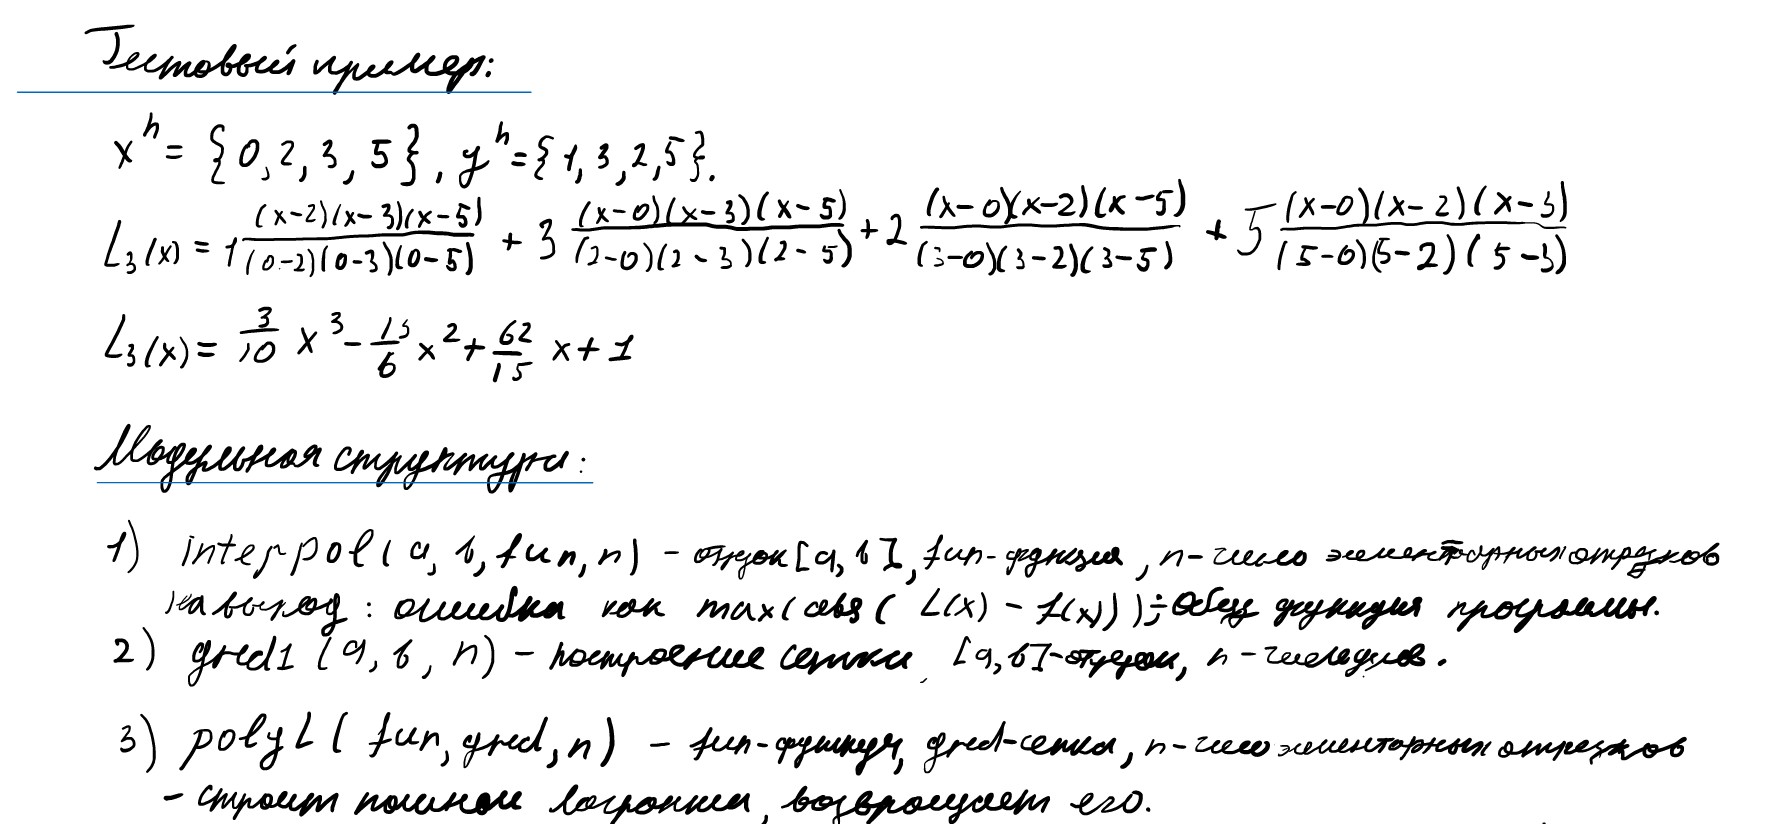 Тестовый пример:
x^h = {0, 2, 3, 5}, y^h = {1, 3, 2, 5}.
L_3(x) = 1 (x-2)(x-3)(x-5)/(0-2)(0-3)(0-5) + 3 (x-0)(x-3)(x-5)/(2-0)(2-3)(2-5) + 2 (x-0)(x-2)(x-5)/(3-0)(3-2)(3-5) + 5 (x-0)(x-2)(x-3)/(5-0)(5-2)(5-3)
L_3(x) = 3/10 x^3 - 13/6 x^2 + 62/15 x + 1
Модульная структура:
1) interpol(a, b, fun, n) - [a, b], fun-функция, n-число элементарных отрезков
на выход: ошибка как max(abs(L(x) - f(x))); функция программы.
2) gred1(a, b, n) - построение сетки, [a, b]-отрезок, n - число узлов.
3) polyL(fun, gred, n) - fun-функция, gred-сетка, n-число элементарных отрезков
- строит полином Лагранжа, возвращает его.